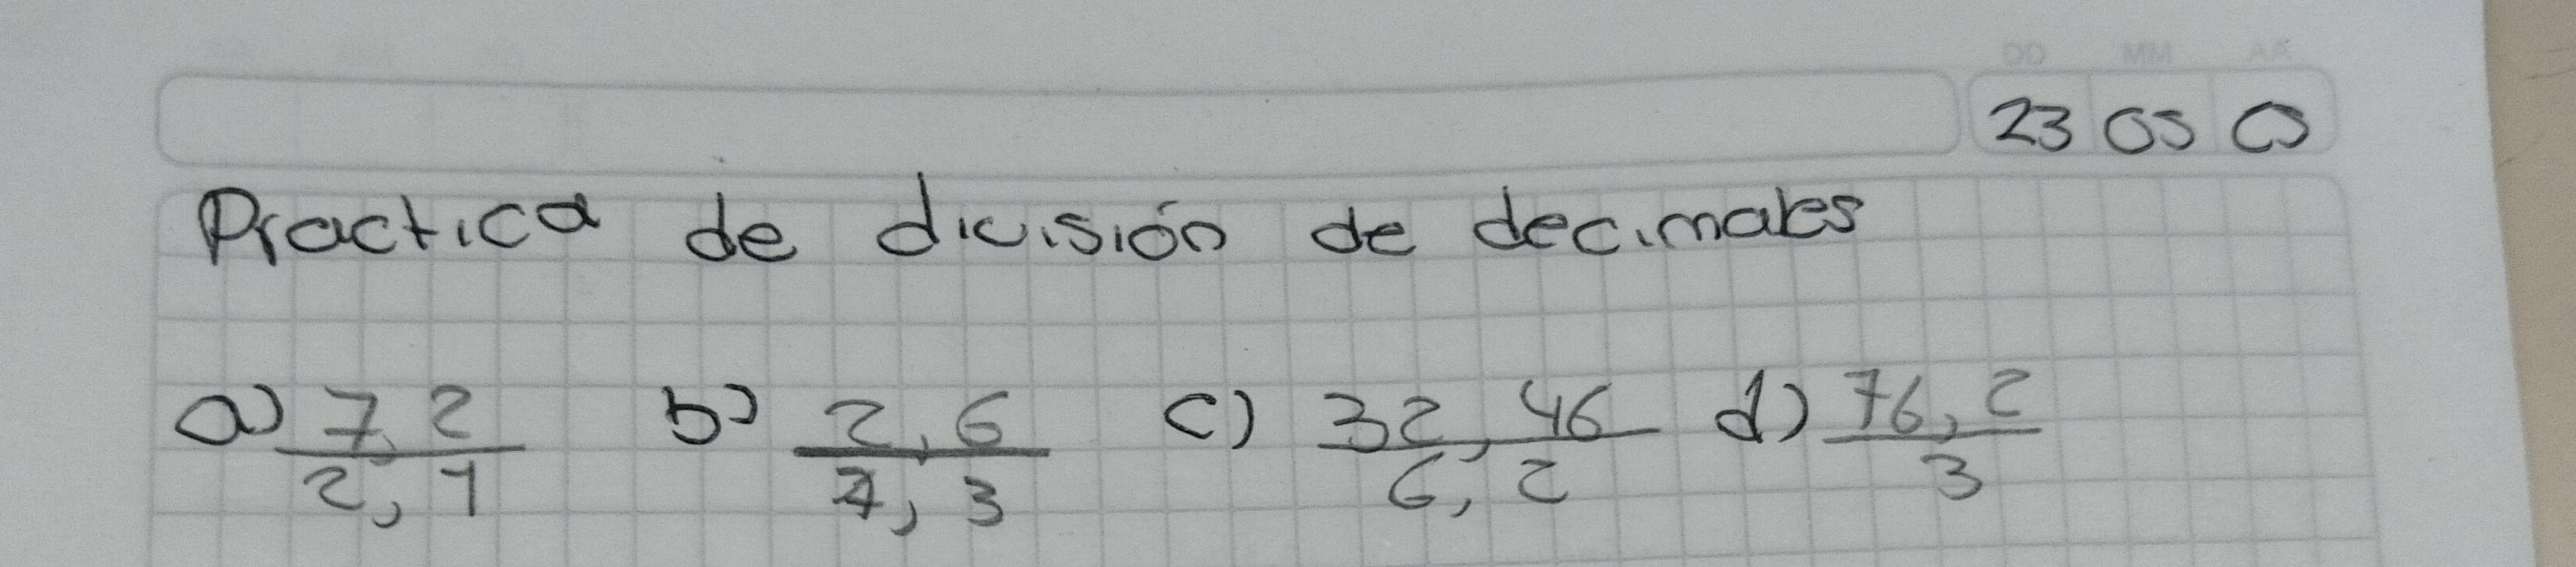 DD MM AA
23 05 05
Practica de división de decimales
a) 7,2 / 2,1 b) 2,6 / 7,3 c) 32,46 / 6,2 d) 76,2 / 3